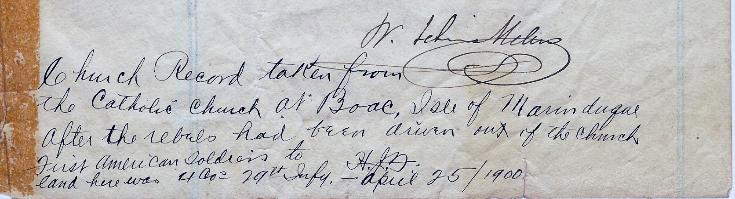 W.
Church Record taken from
the Catholic Church at Boac, Isle of Marinduque
after the rebels had been driven out of the church
First American Soldiers to
land here was 4 Cos 29th Infy. — April 25/1900